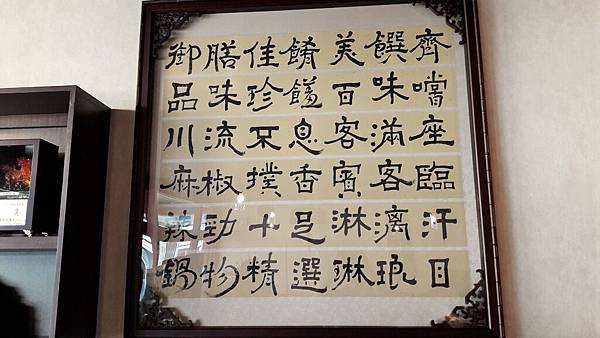 御膳佳餚美饌齊
品味珍饈百味嚐
川流不息客滿座
麻椒撲香賓客臨
辣勁十足淋漓汗
鍋物精選琳琅目